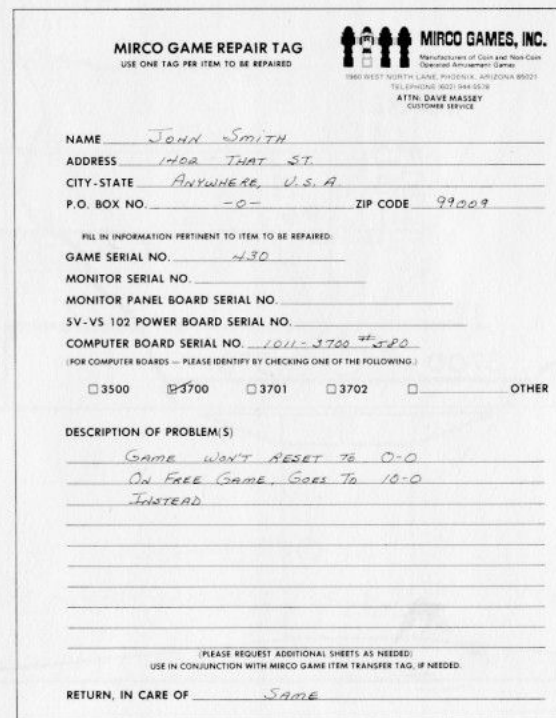 MIRCO GAME REPAIR TAG
USE ONE TAG PER ITEM TO BE REPAIRED
MIRCO GAMES, INC.
Manufacturers of Coin and Non-Coin
Operated Amusement Games
1960 WEST NORTH LANE, PHOENIX, ARIZONA 85021
TELEPHONE (602) 944-5578
ATTN: DAVE MASSEY
CUSTOMER SERVICE
NAME JOHN SMITH
ADDRESS 1402 THAT ST.
CITY-STATE ANYWHERE, U.S.A.
P.O. BOX NO. -0- ZIP CODE 99009
FILL IN INFORMATION PERTINENT TO ITEM TO BE REPAIRED:
GAME SERIAL NO. 430
MONITOR SERIAL NO.
MONITOR PANEL BOARD SERIAL NO.
5V-VS 102 POWER BOARD SERIAL NO.
COMPUTER BOARD SERIAL NO. 1011-3700 #580
(FOR COMPUTER BOARDS — PLEASE IDENTIFY BY CHECKING ONE OF THE FOLLOWING.)
☐ 3500 ☑ 3700 ☐ 3701 ☐ 3702 ☐ OTHER
DESCRIPTION OF PROBLEM(S)
GAME WON'T RESET TO 0-0
ON FREE GAME, GOES TO 10-0
INSTEAD
(PLEASE REQUEST ADDITIONAL SHEETS AS NEEDED)
USE IN CONJUNCTION WITH MIRCO GAME ITEM TRANSFER TAG, IF NEEDED.
RETURN, IN CARE OF SAME